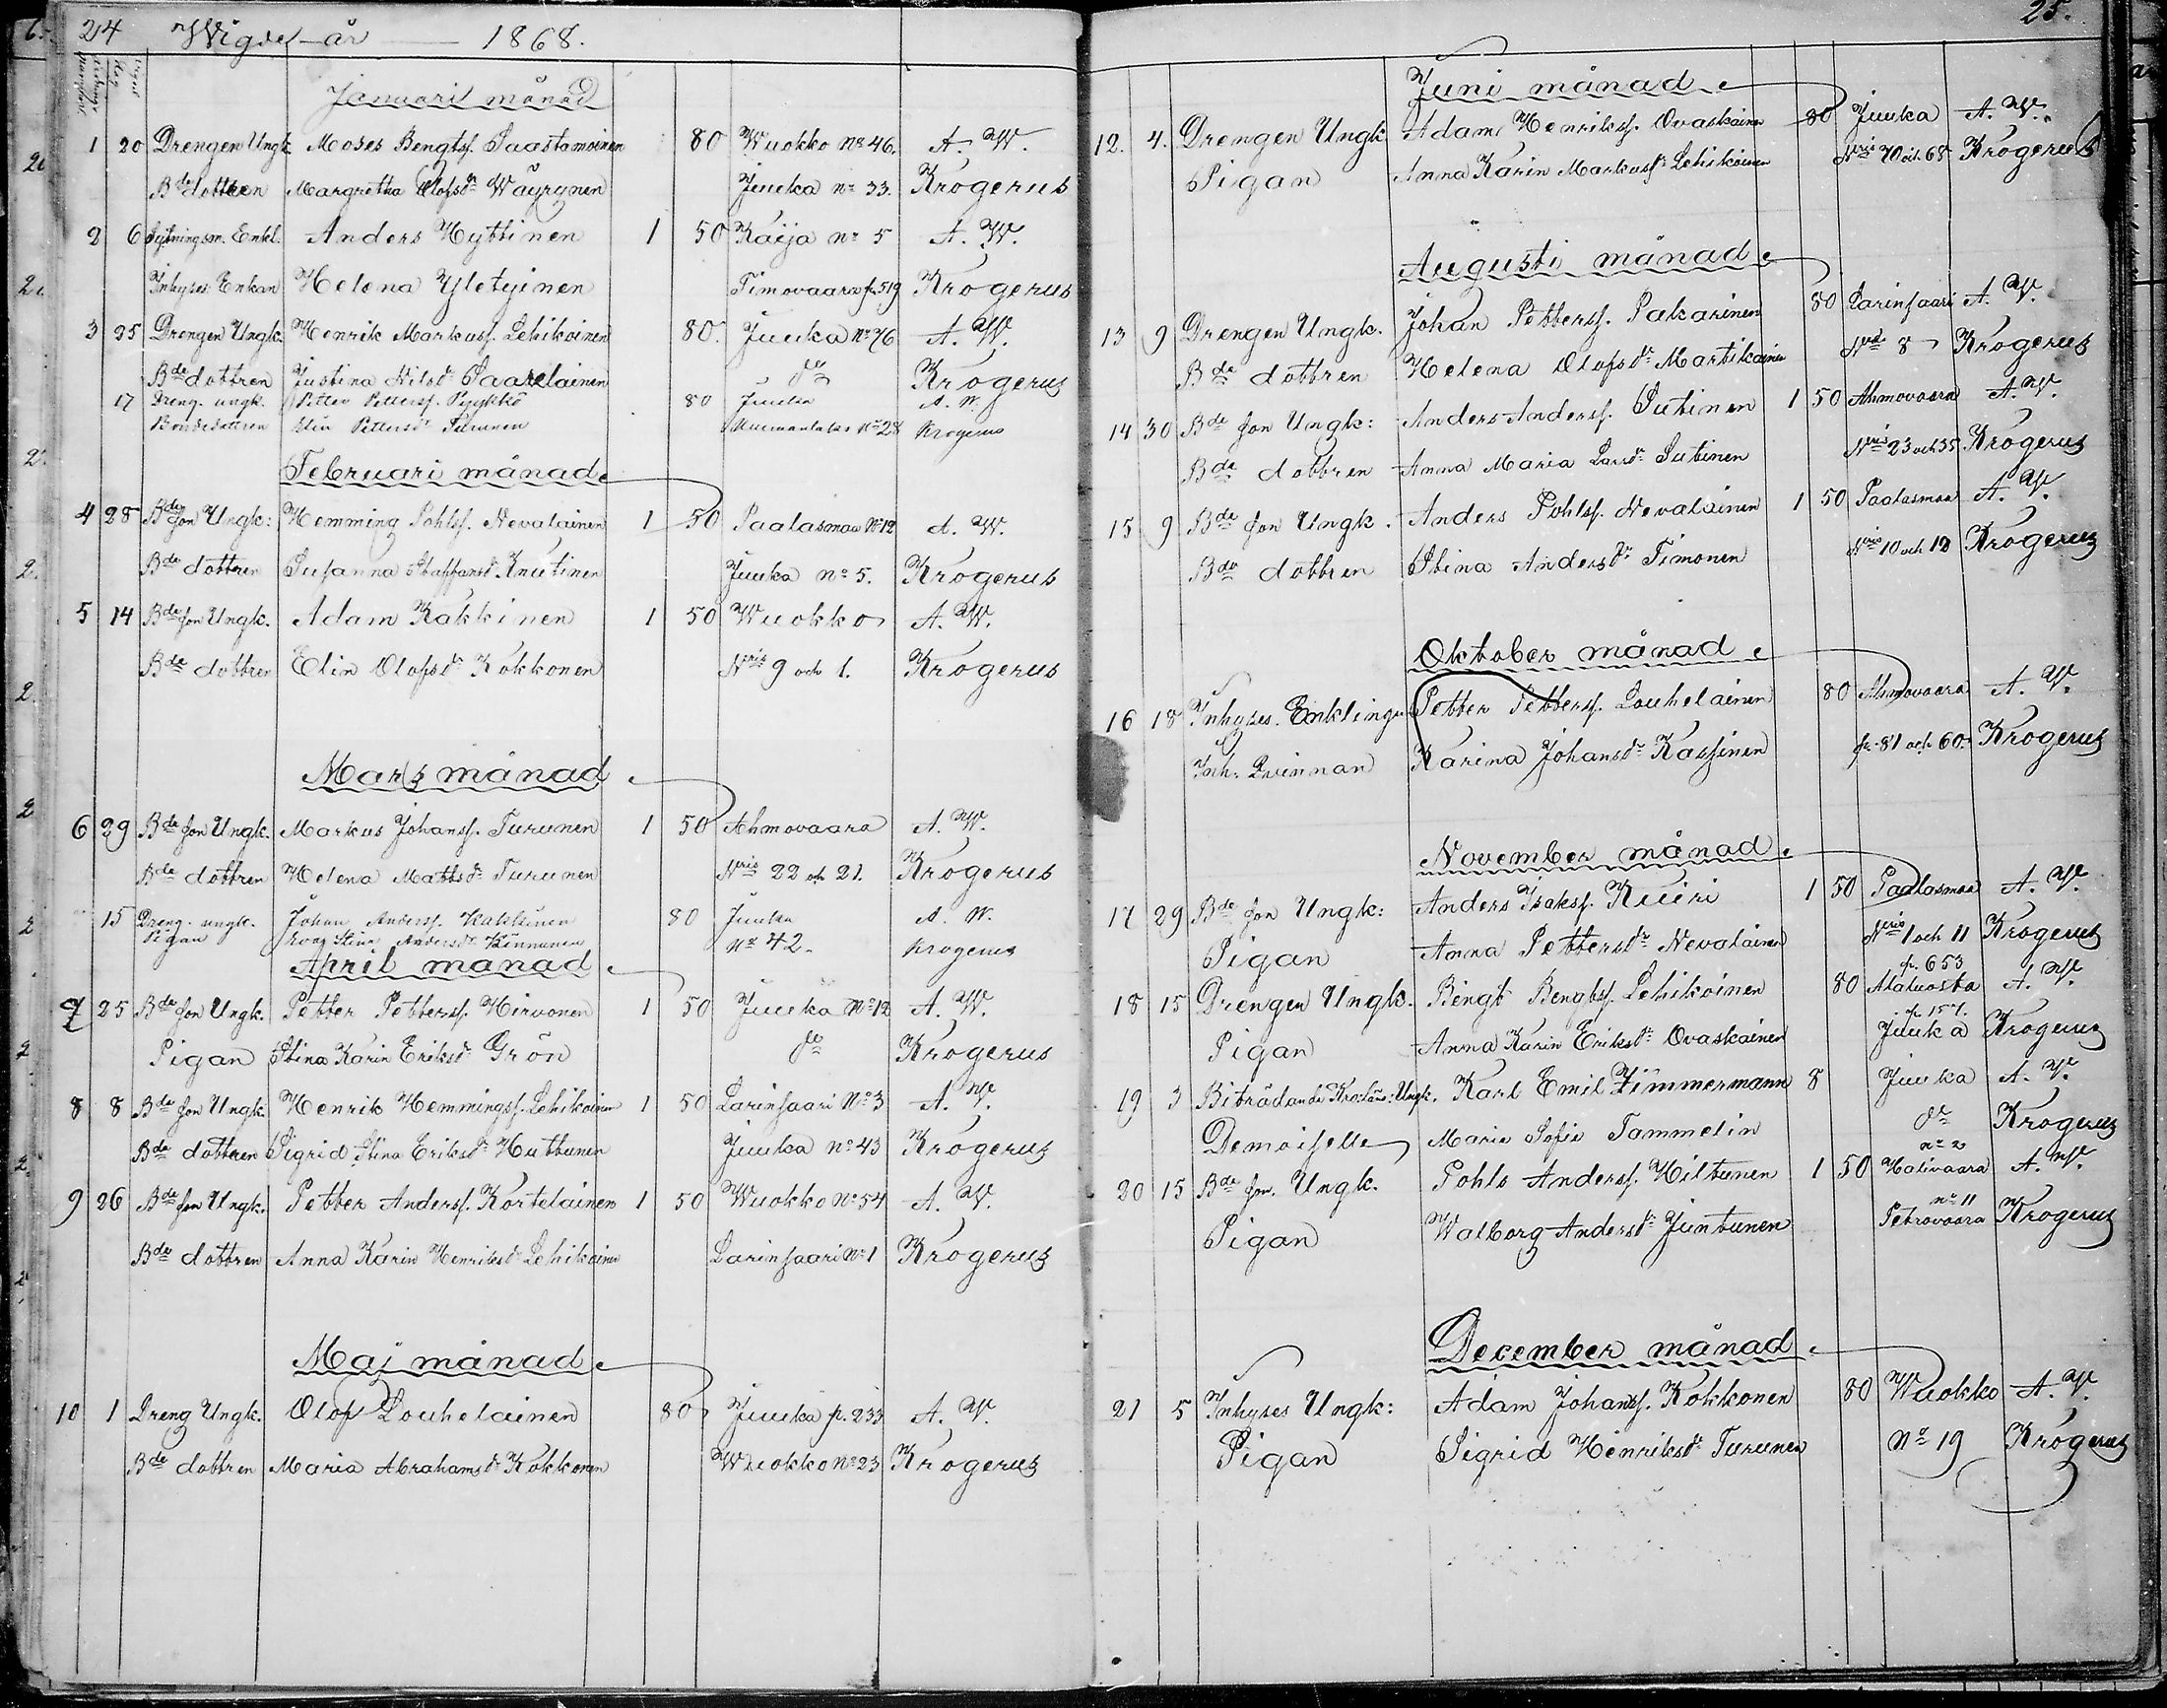 24 Wigde år 1868.
Januari månad
1 20 Drengen Ungk. Moses Bengtss. Saastamoinen 80 Wuokko No 46. A. W.
Bde dottren Margretha Olofsdr Wäyrynen Juuka No 33. Krogerus
2 6 Sytningsm. Enkl. Anders Hyttinen 1 50 Kaija No 5 A. W.
Inhyses Enkan Helena Yletyinen Timovaara p. 519 Krogerus
3 25 Drengen Ungk. Henrik Markuss. Lehikoinen 80. Juuka No 76 A. W.
Bde dottren Justina Nilsdr Saarelainen do Krogerus
17 Dreng. ungk. Petter Petterss. Pyykkö 80 Juuka A. W.
Bondedottren Elin Pettersdr Turunen No 28 Krogerus
Februari månad
4 28 Bde son Ungk: Hemming Pohlss. Nevalainen 1 50 Paalasmaa No 12 A. W.
Bde dottren Susanna Staffansdr Knutinen Juuka No 5. Krogerus
5 14 Bde son Ungk. Adam Kakkinen 1 50 Wuokko A. W.
Bde dottren Elin Olofsdr Kokkonen Nris 9 och 1. Krogerus
Mars månad
6 29 Bde son Ungk. Markus Johanss. Turunen 1 50 Ahmovaara A. W.
Bde dottren Helena Mattsdr Turunen Nris 22 och 21. Krogerus
15 Dreng. ungk. Johan Anderss. Kakkinen 80 Juuka A. W.
Pigan Eva Stina Andersdr Kinnunen No 42. Krogerus
April månad
7 25 Bde son Ungk. Petter Petterss. Hirvonen 1 50 Juuka No 12 A. W.
Pigan Stina Karin Eriksdr Grön do Krogerus
8 8 Bde son Ungk. Henrik Hemmingss. Lehikoinen 1 50 Larinsaari No 3 A. W.
Bde dottren Sigrid Stina Eriksdr Huttunen Juuka No 43 Krogerus
9 26 Bde son Ungk. Petter Anderss. Kortelainen 1 50 Wuokko No 54 A. W.
Bde dottren Anna Karin Henriksdr Lehikoinen Larinsaari No 1 Krogerus
Maj månad
10 1 Dreng Ungk. Olof Louhelainen 80 Juuka p. 233 A. W.
Bde dottren Maria Abrahamsdr Kokkonen Wuokko No 23 Krogerus
25.
Juni månad
12. 4. Drengen Ungk Adam Henrikss. Ovaskainen 80 Juuka A. W.
Pigan Anna Karin Markusdr Lehikoinen Nris 70 och 68 Krogerus
Augusti månad
13 9 Drengen Ungk. Johan Petterss. Pakarinen 80 Larinsaari A. W.
Bde dottren Helena Olofsdr Martikainen No 8 Krogerus
14 30 Bde son Ungk: Anders Anderss. Sutinen 1 50 Ahmovaara A. W.
Bde dottren Anna Maria Larsdr Sutinen Nris 23 och 35 Krogerus
15 9 Bde son Ungk. Anders Pohlss. Nevalainen 1 50 Paalasmaa A. W.
Bde dottren Stina Andersdr Timonen Nris 10 och 12 Krogerus
Oktober månad
16 18 Inhyses. Enklingen Petter Petterss. Louhelainen 80 Ahmovaara A. W.
Inh: Qvinnan Karina Johansdr Kassinen p. 81 och 60. Krogerus
November månad
17 29 Bde son Ungk: Anders Isakss. Kuiri 1 50 Paalasmaa A. W.
Pigan Anna Pettersdr Nevalainen Nris 1 och 11 Krogerus
18 15 Drengen Ungk. Bengt Bengtss. Lehikoinen 80 p. 653 Alaluosta A. W.
Pigan Anna Karin Eriksdr Ovaskainen p. 157. Juuka Krogerus
19 3 Biträdande Krolänsm: Ungk. Karl Emil Zimmermann 8 Juuka A. W.
Demoiselle Maria Sofia Tammelin do Krogerus
20 15 Bde son. Ungk. Pohls Anderss. Hiltunen 1 50 No 2 Halivaara A. W.
Pigan Walborg Andersdr Juntunen No 11 Petrovaara Krogerus
December månad
21 5 Inhyses Ungk: Adam Johanss. Kokkonen 80 Wuokko A. W.
Pigan Sigrid Henriksdr Turunen No 19 Krogerus